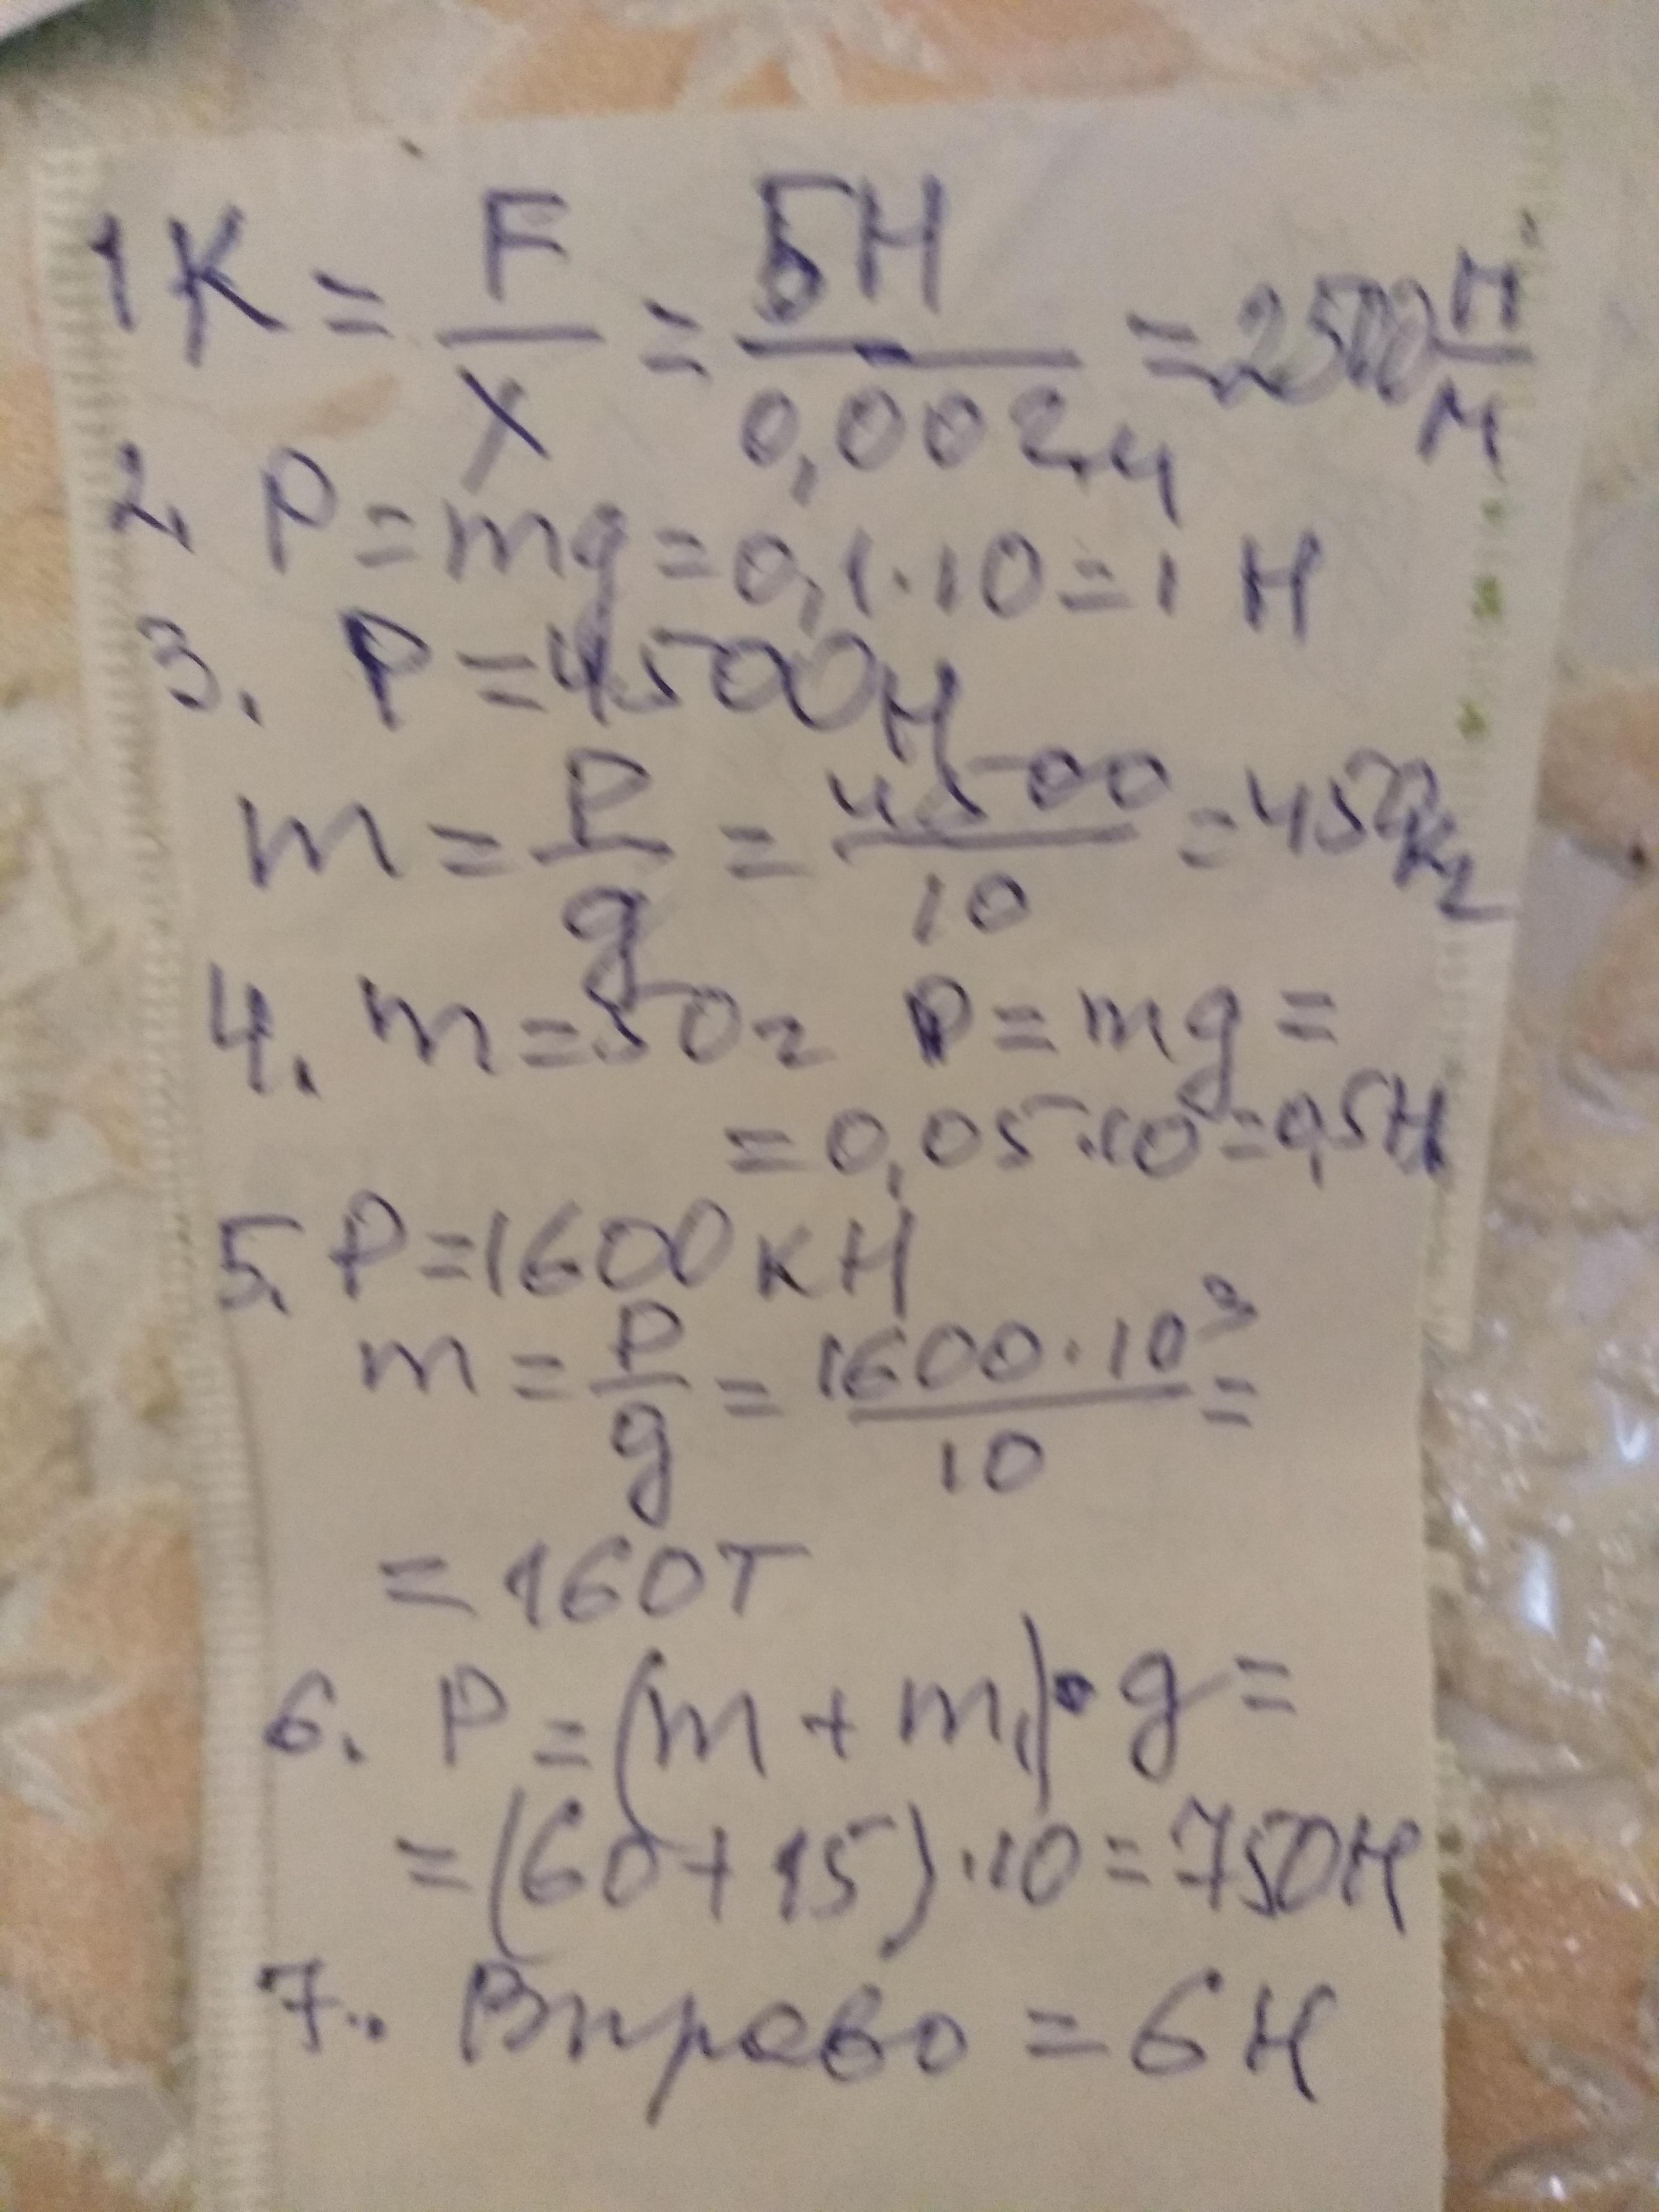 1 K = F/x = 5Н/0,002м = 2500 Н/м
2. P = mg = 0,1·10 = 1 Н
3. P = 4500Н
m = P/g = 4500/10 = 450кг
4. m = 50г P = mg =
= 0,05·10 = 0,5Н
5. P = 1600 кН
m = P/g = 1600·10³/10 =
= 160т
6. P = (m + m₁)·g =
= (60 + 15)·10 = 750Н
7. Вправо = 6Н